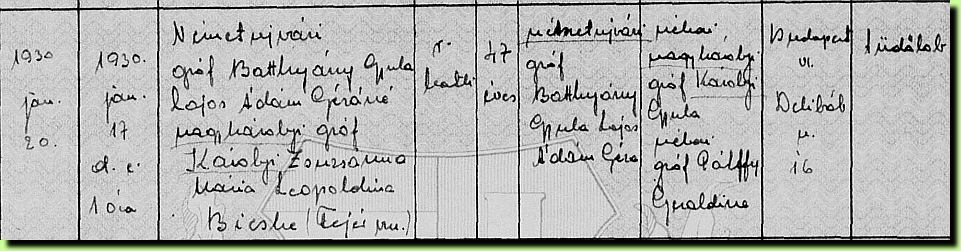 1930
jan.
20.
1930.
jan.
17
d. e.
1 óra
Németujvári
gróf Batthyány Gyula
Lajos Ádám Gézáné
nagykárolyi gróf
Károlyi Zsuzsanna
Mária Leopoldina
Bicske (Fejér vm.)
r.
kath.
47
éves
németujvári
gróf
Batthyány
Gyula Lajos
Ádám Géza
néhai
nagykárolyi
gróf Károlyi
Gyula
néhai
gróf Pálffy
Geraldine
Budapest
VI.
Délibáb
u.
16
tüdőlob